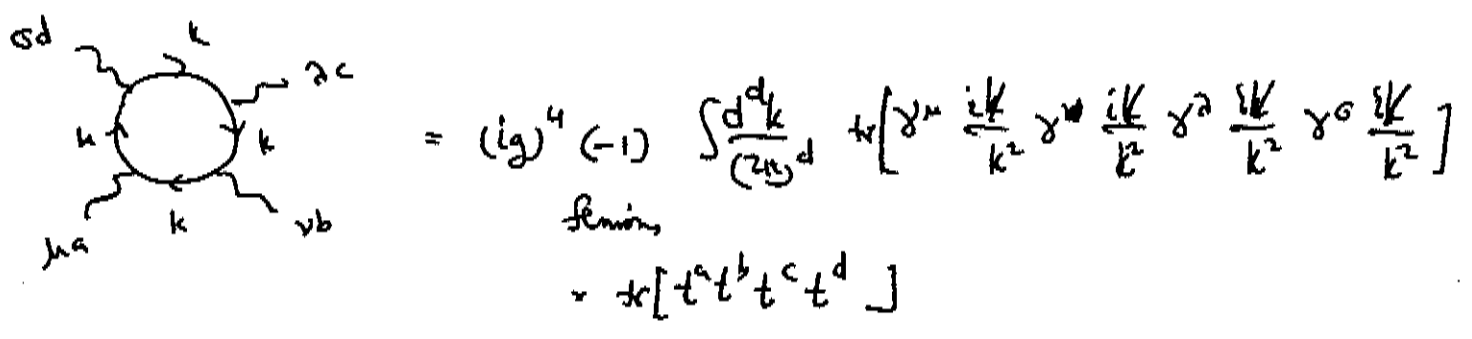 σd k λc
k k = (ig)⁴ (-1) ∫ d^d k / (2π)^d tr[γ^μ i𝑘̸/k² γ^ν i𝑘̸/k² γ^λ i𝑘̸/k² γ^σ i𝑘̸/k²]
μa k νb fermion
× tr[t^a t^b t^c t^d]